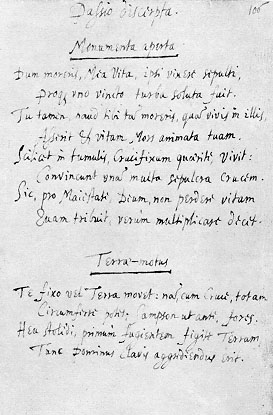 Passio discerpta. 106
Monumenta aperta
Dum moreris, Mea Vita, ipsi vixere sepulti,
Proq, vno vincto turba soluta fuit.
Tu tamen, haud tibi tam moreris, quam vivis in illis,
Asserit & vitam Mors animata tuam.
Scilicet in tumulis, Crucifixum quærite, Vivit:
Convincunt vnam multa sepulcra Crucem.
Sic, pro Maiestate, Deum, non perdere vitam
Quam tribuit, verum multiplicare decet.
Terræ-motus
Te fixo vel Terra movet: nam, cum Cruce, totam
Circumferre potes; Sampson ut antè, fores.
Heu stolidi, primùm fugientem figite Terram,
Tunc Dominus Clavis aggrediendus erit.